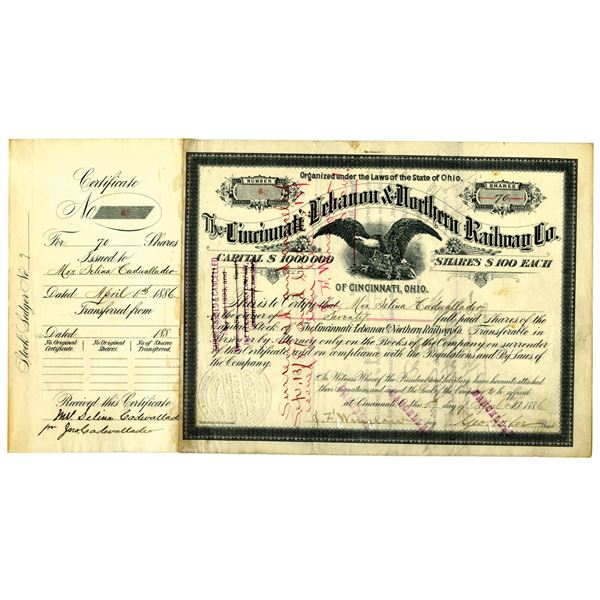 Certificate
No 6
For 70 Shares
Issued to
Mrs Selina Cadwallader
Dated April 1st 1886
Transferred from
Dated 188
No. Original Certificate. No. Original Shares. No. of Shares Transferred.
Received this Certificate
Mrs Selina Cadwallader
pr Jno. Cadwallader
Stock Ledger No. 2
Organized under the Laws of the State of Ohio.
NUMBER
6
SHARES
70
The Cincinnati Lebanon & Northern Railway Co.
CAPITAL $ 1000000
SHARES $ 100 EACH
OF CINCINNATI, OHIO.
This is to Certify that Mrs Selina Cadwallader
is the owner of Seventy full paid Shares of the
Capital Stock of The Cincinnati Lebanon and Northern Railway Co. Transferable in
Person or by Attorney only on the Books of the Company on surrender
of this Certificate, and on compliance with the Regulations and By Laws of
the Company.
In Witness Whereof the President and Secretary have hereunto attached
their Signatures and caused the Seal of the Company to be affixed
at Cincinnati this 1st day of April AD 1886
CANCELLED
CANCELLED